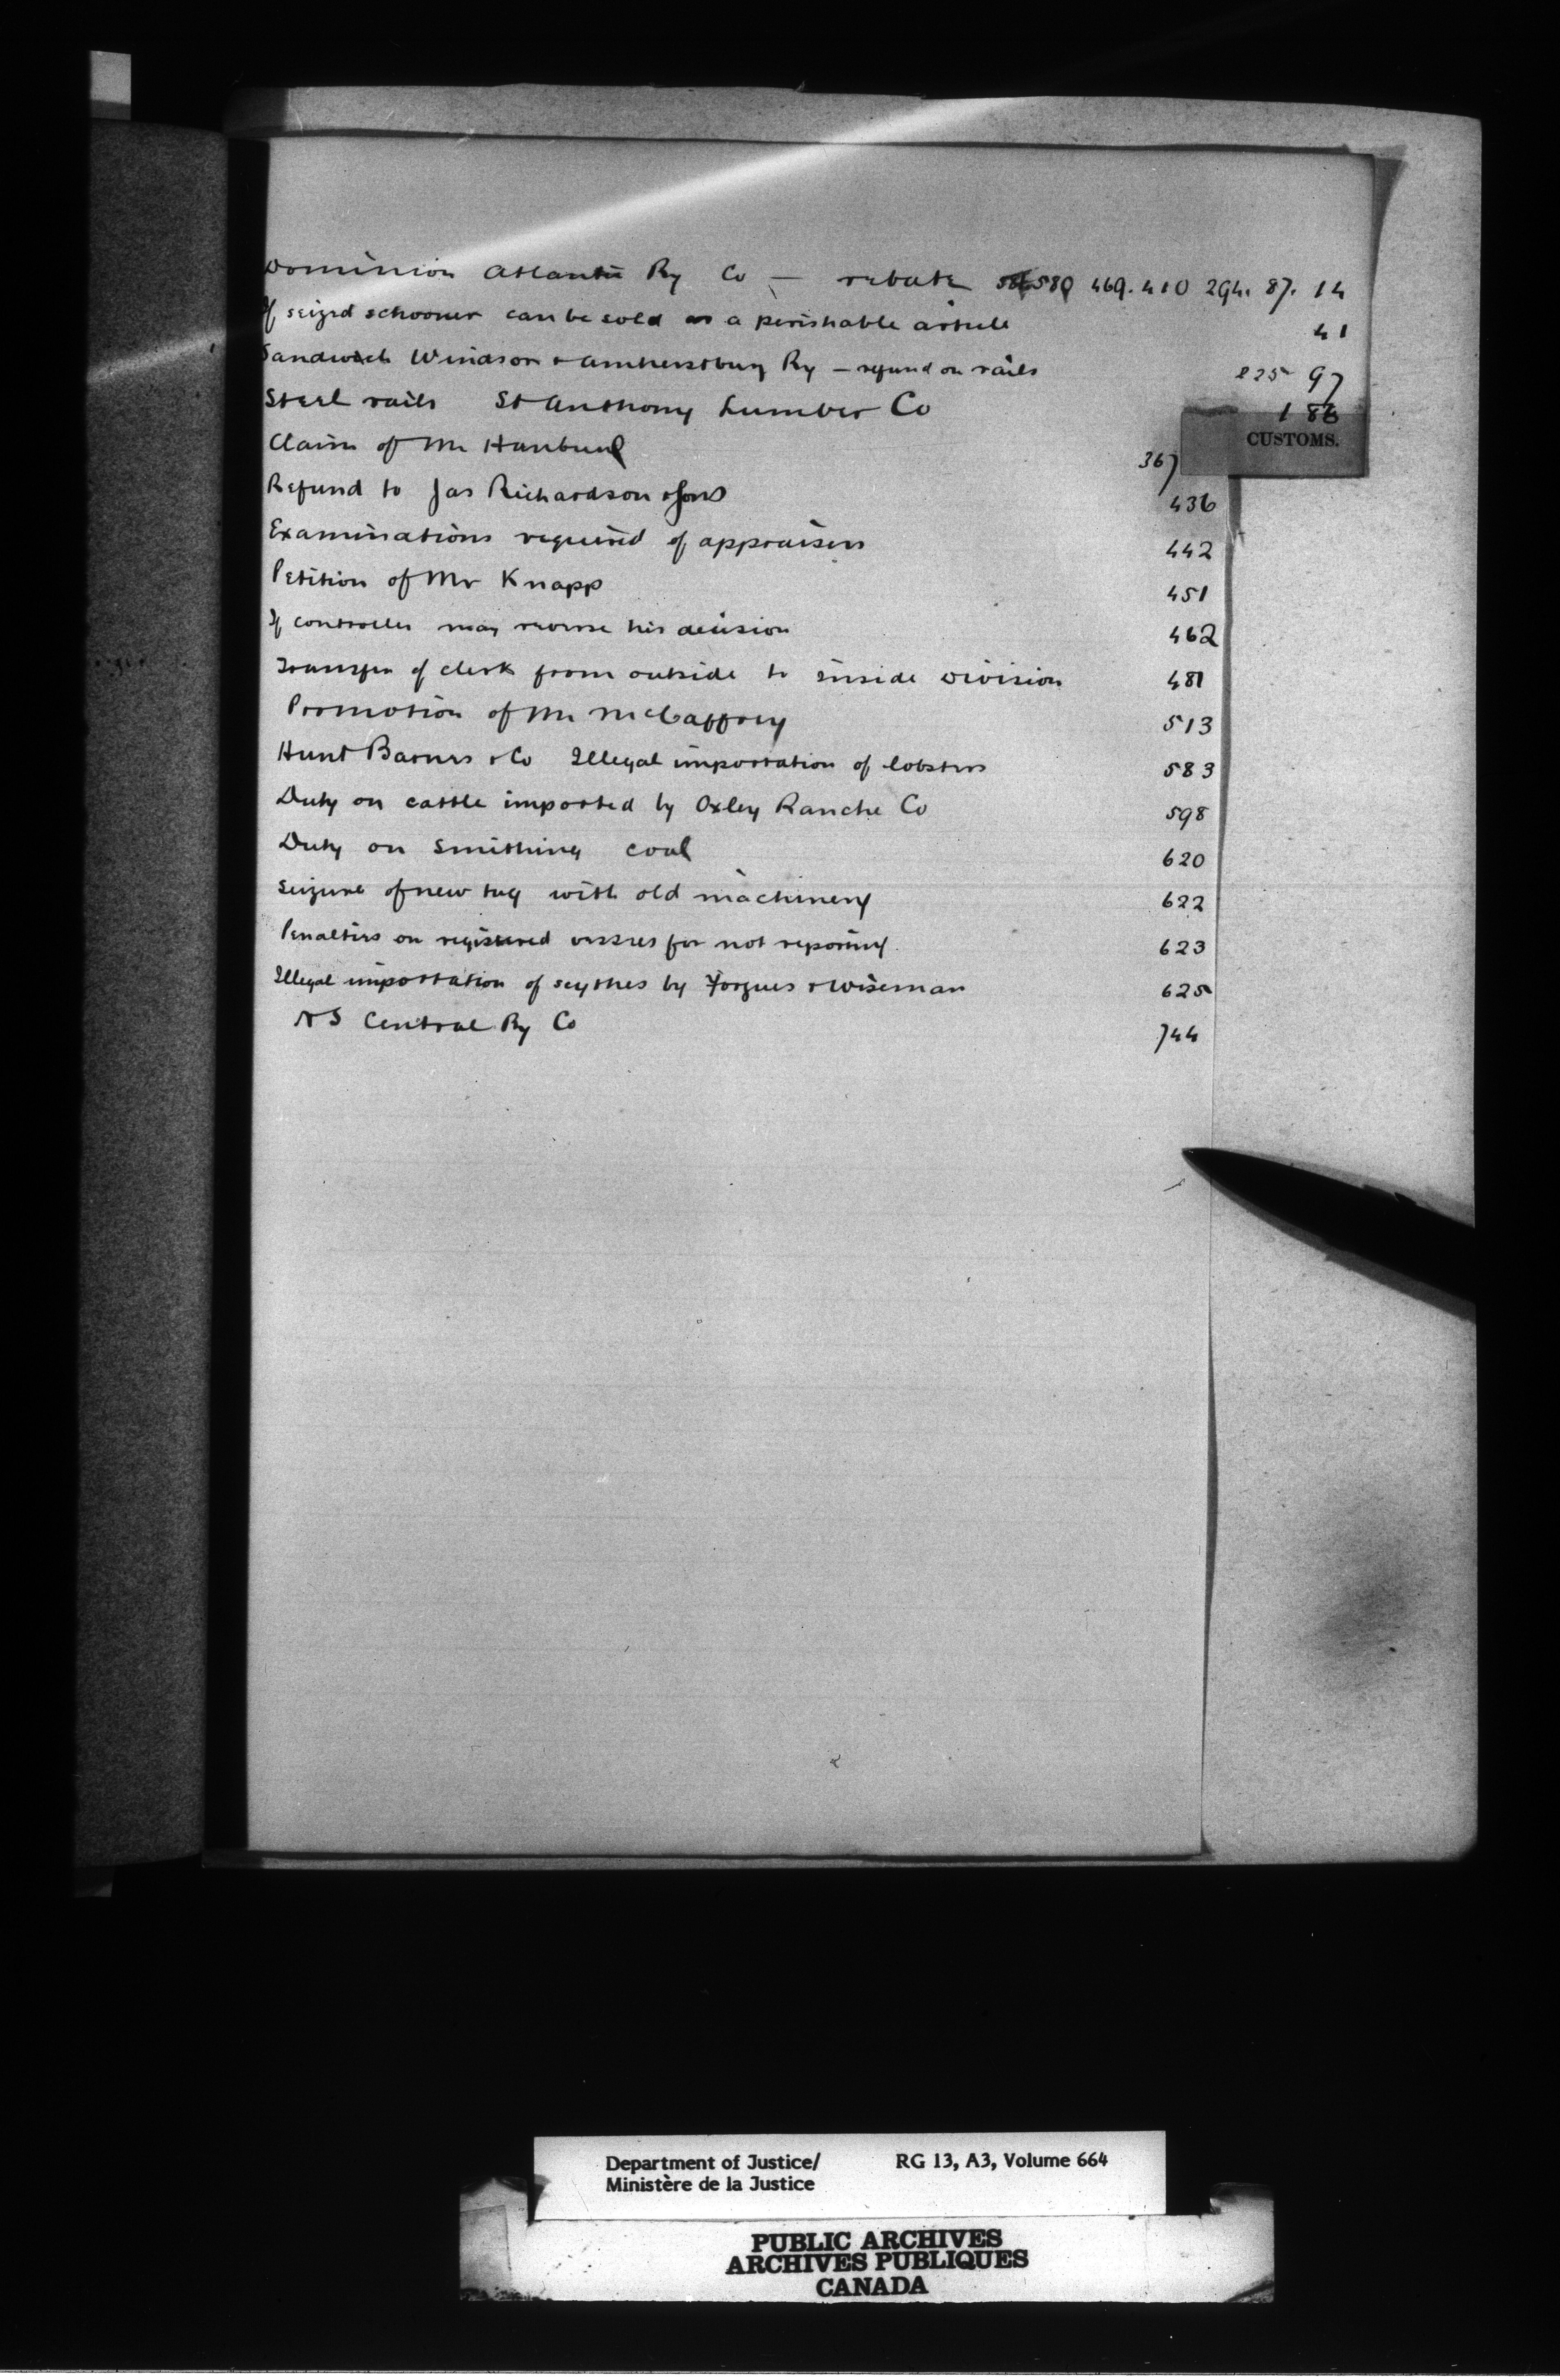 Dominion Atlantic Ry Co — rebate 580 469. 410 294. 87. 14
If seized schooner can be sold as a perishable article 41
Sandwich Windsor & Amherstburg Ry — refund on rails 225 97
Steel rails St Anthony Lumber Co 186
CUSTOMS.
Claim of Mr 367
Refund to Jas Richardson & Sons 436
Examinations required of appraisers 442
Petition of Mr Knapp 451
If controller may reverse his decision 462
Transfer of clerk from outside to inside division 481
Promotion of Mr McCaffrey 513
Hunt Barnes & Co Illegal importation of lobsters 583
Duty on cattle imported by Oxley Ranche Co 598
Duty on smithing coal 620
Seizure of new tug with old machinery 622
Penalties on registered vessels for not reporting 623
Illegal importation of scythes by Forgues & Wiseman 625
N S Central Ry Co 744
Department of Justice/ RG 13, A3, Volume 664
Ministère de la Justice
PUBLIC ARCHIVES
ARCHIVES PUBLIQUES
CANADA